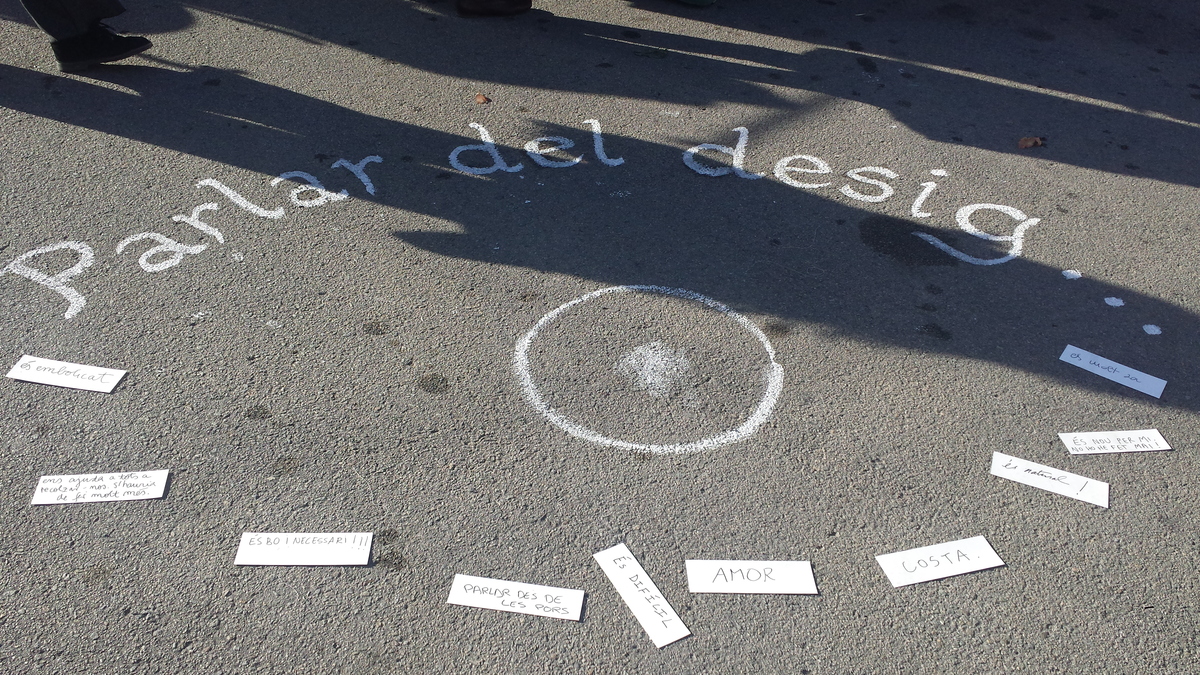 Parlar del desig...
és embolicat
ens ajuda a tots a
recolzar-nos. S'hauria
de fer molt més.
ÉS BO I NECESSARI!!!
PARLAR DES DE
LES PORS
ÉS DIFÍCIL
AMOR
COSTA.
és natural!
ÉS NOU PER MI
NO HO HE FET MAI!
és molt sa